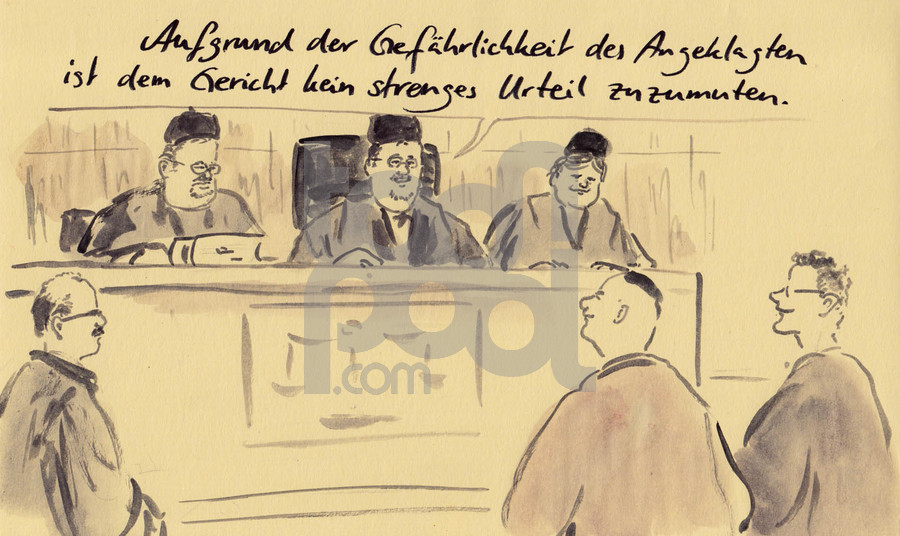 Aufgrund der Gefährlichkeit des Angeklagten
ist dem Gericht kein strenges Urteil zuzumuten.
toon
pool
.com